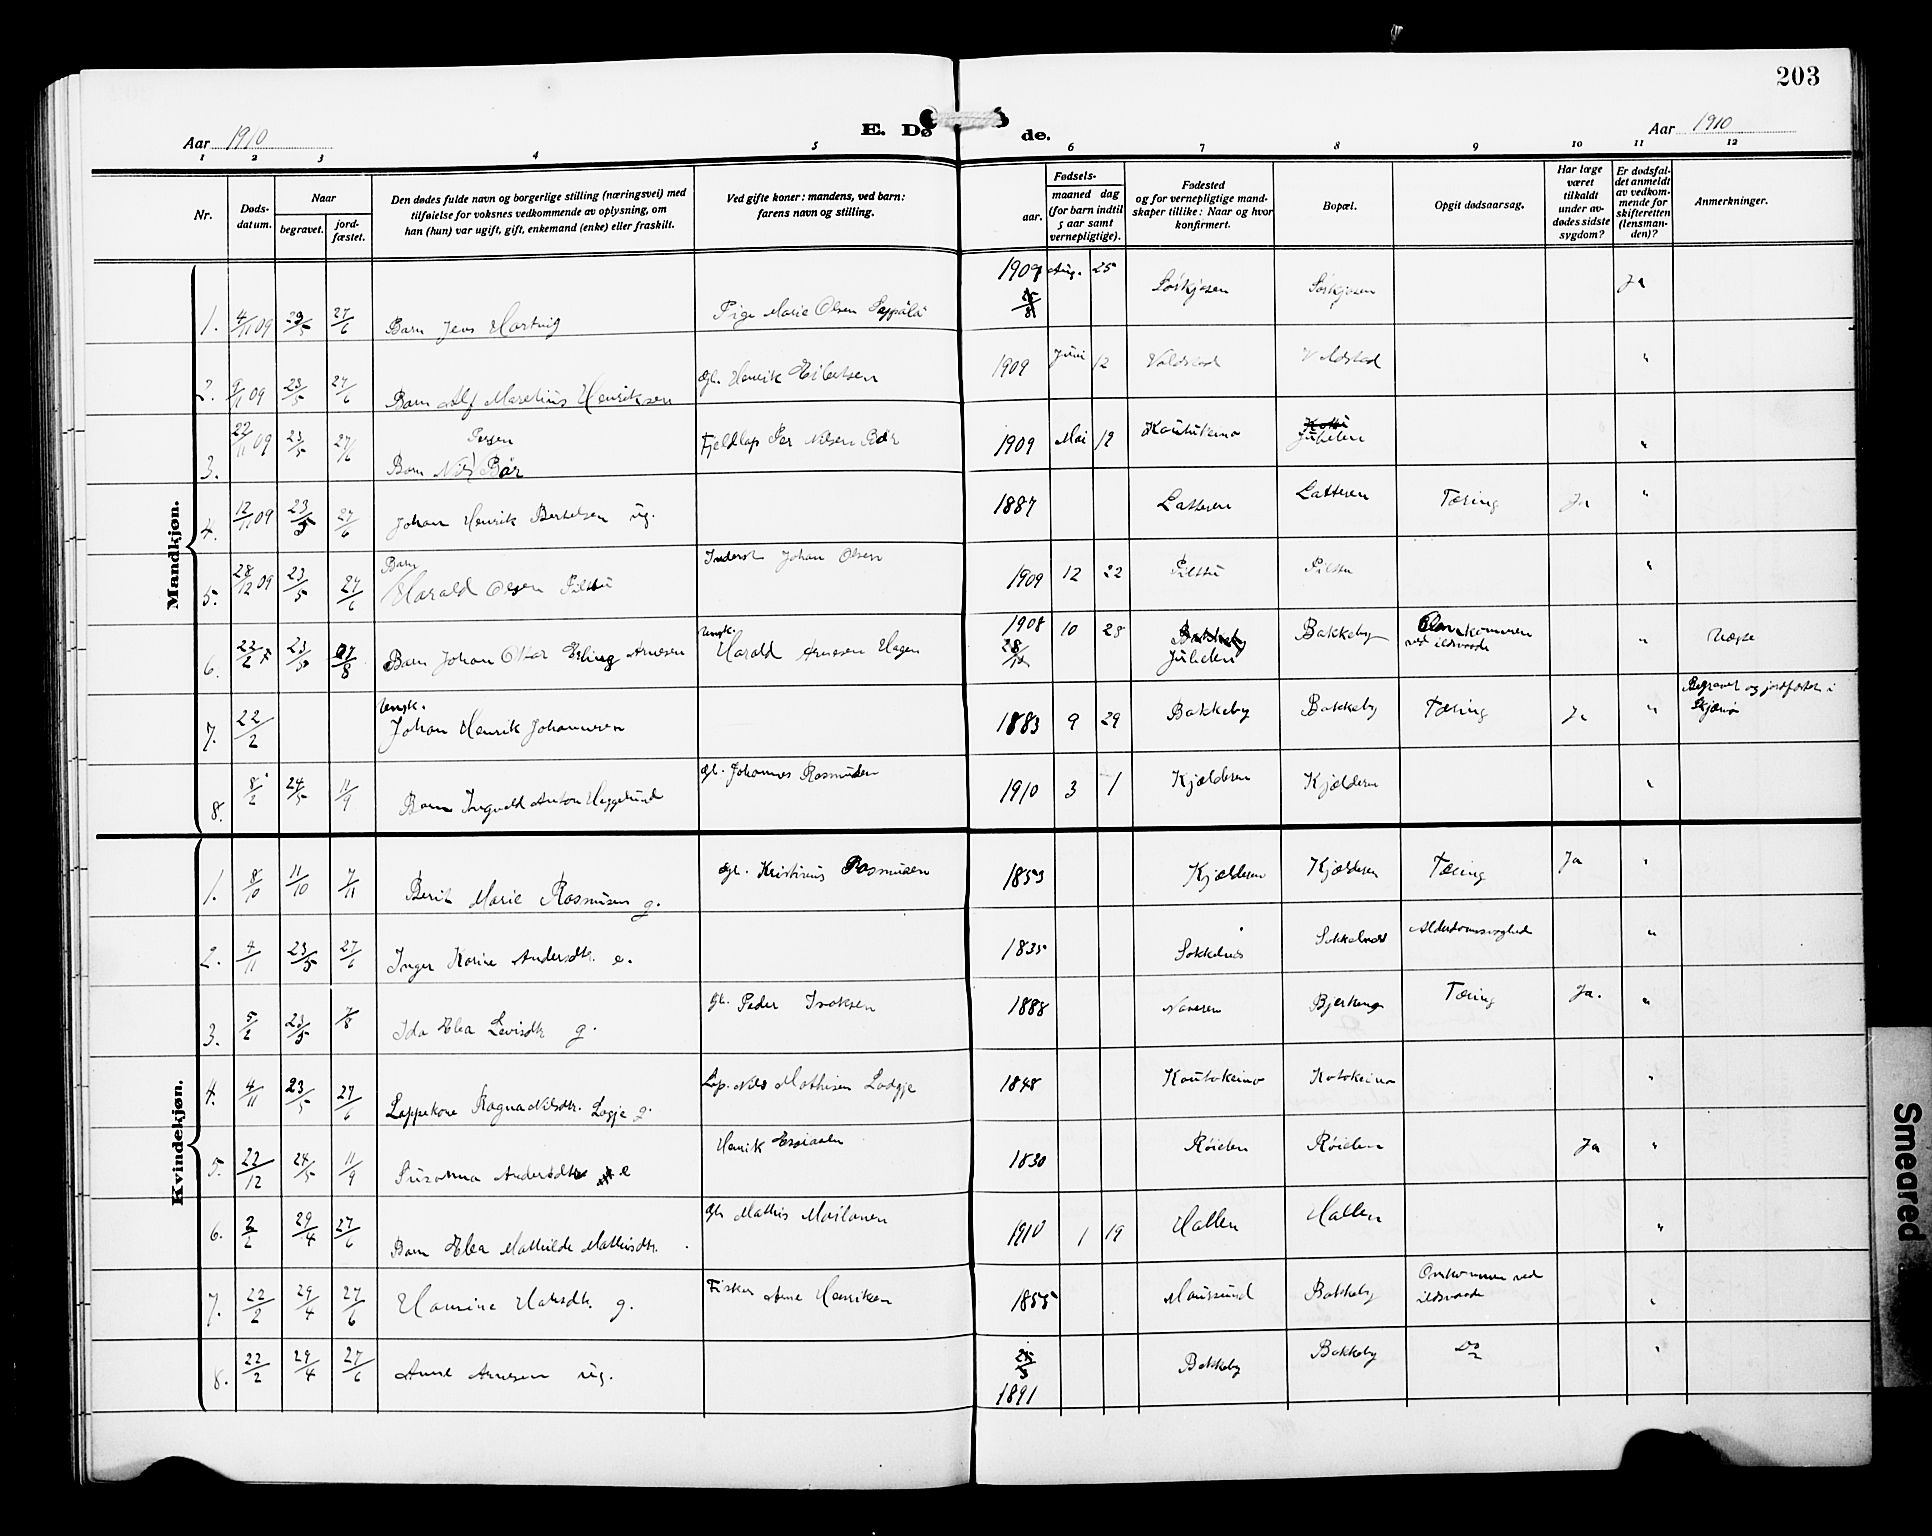 203
Aar 1910
E. Dø de.
Aar 1910
1 2 3 4 5 6 7 8 9 10 11 12
Nr.
Døds-
datum.
Naar
begravet.
jord-
fæstet.
Den dødes fulde navn og borgerlige stilling (næringsvei) med
tilføielse for voksnes vedkommende av oplysning, om
han (hun) var ugift, gift, enkemand (enke) eller fraskilt.
Ved gifte koner: mandens, ved barn:
farens navn og stilling.
Fødsels-
aar.
maaned dag
(for barn indtil
5 aar samt
vernepligtige).
Fødested
og for vernepligtige mand-
skaper tillike: Naar og hvor
konfirmert.
Bopæl.
Opgit dødsaarsag.
Har læge
været
tilkaldt
under av-
dødes sidste
sygdom?
Er dødsfal-
det anmeldt
av vedkom-
mende for
skifteretten
(lensman-
den)?
Anmerkninger.
Mandkjøn.
1. 4/11 09 23/5 27/6 Barn Jens Hartvig Pige Marie Olsen 1909 Aug. 25 Sørkjosen Sørkjosen Ja
2. 9/11 09 23/5 27/6 Barn Alf Marelius Henriksen Henrik 1909 Juni 12 "
3. 22/11 09 23/5 27/6 Barn Nils Persen Bær Fjeldlap Per Nilsen Bær 1909 Mai 12 Koutukeino Jubelen "
4. 12/11 09 23/5 27/6 Johan Henrik Bertelsen ug. 1887 Latteren Latteren Tæring Ja "
5. 28/12 09 23/5 27/6 Barn Harald Olsen Inderst Johan Olsen 1909 12 22 "
6. 22/2 23/5 27/8 Barn Johan Erling Arnesen Harald Arnesen Hagen 1908 10 28 28/10 Bakkeby Bakkeby Omkommen
ved ildsvaade "
7. 22/2 Ungk. Johan Henrik Johannesen 1883 9 29 Bakkeby Bakkeby Tæring Ja " Begravet og jordfæstet i
Skjærvø
8. 8/2 24/5 11/9 Barn Ingvald Anton Heggelund gb. Johannes Rasmussen 1910 3 1 Kjælderen Kjælderen "
Kvindekjøn.
1. 8/10 11/10 7/11 Berit Marie Rasmusen g. gb. Kristinus Rasmusen 1853 Kjælderen Kjælderen Tæring Ja "
2. 4/11 23/5 27/6 Inger Karine Andersdtr. e. 1835 Sokkelnes Sokkelnes Alderdomssvaghed "
3. 5/2 23/5 7/8 Ida Elea Levisdtr g. gb. Peder Isaksen 1888 Tæring Ja. "
4. 4/11 23/5 27/6 Lappekone Ragna Nilsdtr. Logje g. Lap. Nils Mathisen Lodgje 1848 Koutokeino Kotokeino "
5. 22/12 24/5 11/9 Susanna Andersdtr e Henrik Esaiasen 1830 Røielen Røielen Ja "
6. 2/2 29/4 27/6 Barn Elea Mathilde Mathisdtr. gb. Mathis Mailanen 1910 1 19 Hallen Hallen "
7. 22/2 29/4 27/6 Hansine Hansdtr. g. Fisker Arne Henriksen 1855 Maursund Bakkeby Omkommen ved
ildsvaade "
8. 22/2 29/4 27/6 Anne Arnesen ug. 1891 Bakkeby Bakkeby Do "
Smeared